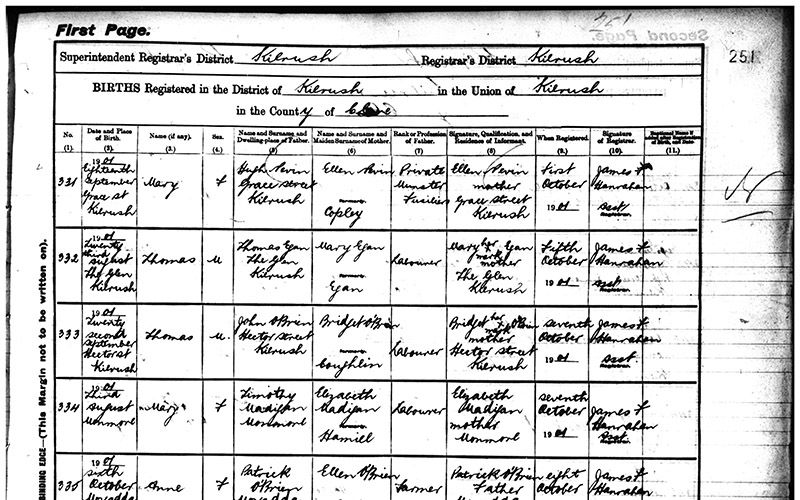 First Page.
251
Superintendent Registrar's District Kilrush Registrar's District Kilrush
BIRTHS Registered in the District of Kilrush in the Union of Kilrush
in the County of Clare
No. Date and Place of Birth. Name (if any). Sex. Name and Surname and Dwelling-place of Father. Name and Surname and Maiden Surname of Mother. Rank or Profession of Father. Signature, Qualification, and Residence of Informant. When Registered. Signature of Registrar. Baptismal Name if added after Registration of Birth, and Date
(1.) (2.) (3.) (4.) (5.) (6.) (7.) (8.) (9.) (10.) (11.)
1901
Eighteenth Hugh Nevin Ellen Nevin Private Ellen Nevin First James F
331 September Mary F Grace Street Munster mother October Hanrahan
Grace St Kilrush Fusiliers Grace Street 1901 Asst
Kilrush Copley Kilrush Registrar.
1901
Twenty Thomas Egan Mary Egan Mary her Egan Fifth James F
332 third August Thomas M. The Glen Labourer x mark mother October Hanrahan
The Glen Kilrush The Glen 1901 Asst
Kilrush Egan Kilrush Registrar.
1901
Twenty John O'Brien Bridget O'Brien Bridget her O'Brien seventh James F
333 second Thomas M. Hector Street Labourer x mark mother October Hanrahan
September Kilrush Hector Street 1901 Asst
Hector St Coughlin Kilrush Registrar.
Kilrush
1901
Third Timothy Elizabeth Elizabeth seventh James F
334 August Mary F Madigan Madigan Labourer Madigan October Hanrahan
Monmore Monmore mother 1901 Asst
Hamill Monmore Registrar.
1901
sixth Patrick Ellen O'Brien Patrick O'Brien eight James F
335 October Anne F O'Brien Farmer Father October Hanrahan
BINDING EDGE—(This Margin not to be written on).
Second Page.